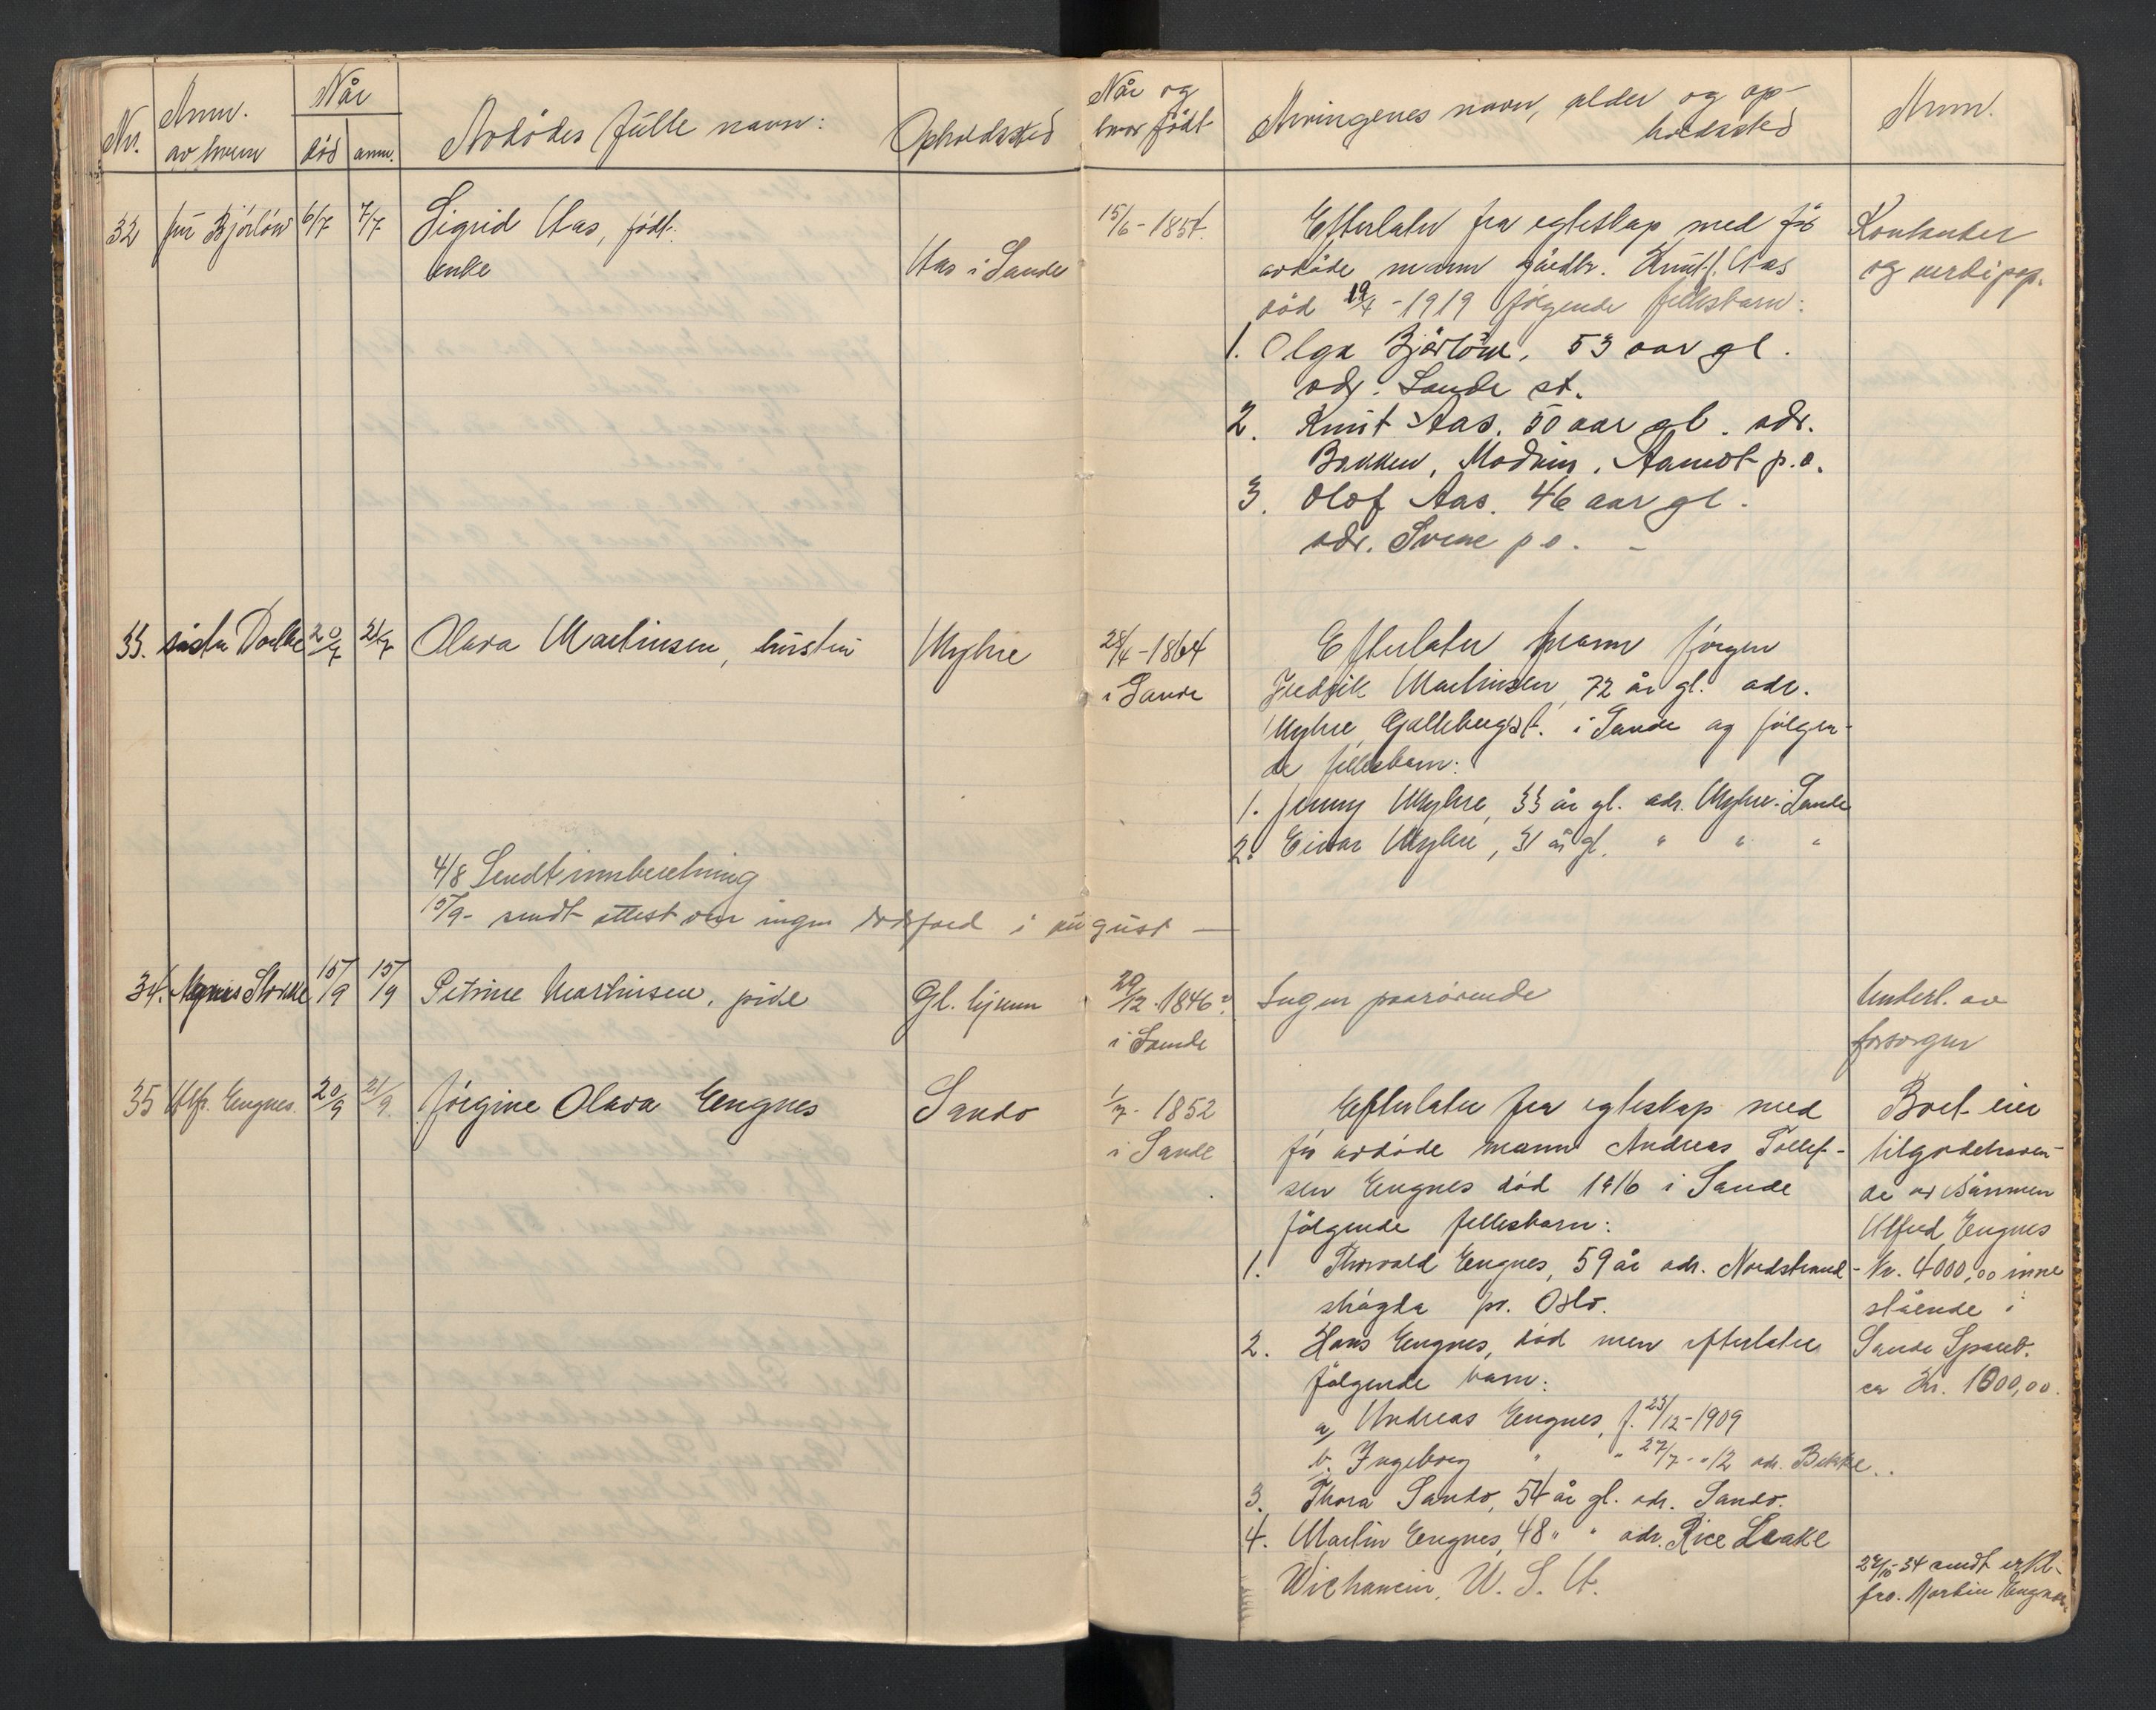 Nr.
Anm. av hvem
Når
død
anm.
Avdødes fulle navn:
Opholdssted
Når og
hvor født
Arvingenes navn, alder og op-
holdssted
Anm.
32 fru Bjørløw 6/7 7/7 Sigrid Aas, født
enke
Aas i Sande
15/6-1854.
Efterlater fra egteskap med før
avdøde mann gårdbr. Knut J. Aas
død 19/4-1919 følgende fellesbarn:
1. Olga Bjørløw, 53 aar gl.
adr. Sande st.
2. Knut Aas, 50 aar gl. adr.
Bakken, Modum, Aamot p.o.
3. Olof Aas. 46 aar gl.
adr. Svene p.o. -
Kontanter
og verdipap.
33. søster Dalbe 20/7 21/7 Olava Martinsen, hustru
Myhre
28/4-1864
i Sande
Efterlater mann Jørgen
Fredrik Martinsen, 72 år gl. adr.
Myhre, Galleberg st. i Sande og følgen-
de fellesbarn:
1. Jenny Myhre, 33 år gl. adr. Myhre i Sande
2. Einar Myhre, 31 år gl. " " "
4/8 Sendt innberetning
15/9- sendt attest om ingen dødsfald i august —
34. Agnes Stokke 15/9 15/9 Petrine Martinsen, pike
Gl. hjem
29/12-1846
i Sande
Ingen paarørende
Underl. av
forsorgen
35 Alfr. Engnes. 20/9 21/9. Jørgine Olava Engnes
Sando
1/7-1852
i Sande
Efterlater fra egteskap med
før avdøde mann Andreas Tollef-
sen Engnes død 1916 i Sande
følgende fellesbarn:
1. Thorvald Engnes, 59 år adr. Nordstrand-
shøgda pr. Oslo.
2. Hans Engnes, død men efterlater
følgende barn:
a, Andreas Engnes, f. 23/12-1909
b. Ingeborg " " 27/7-"12 adr. Bekke..
3. Thora Sando, 54 år gl. adr. Sando.
4. Martin Engnes, 48 " " adr. Rice Leake
U. S. A.
Boet eier
tilgodehaven-
de av sønnen
Alfred Engnes
Kr. 4000,00 inne
stående i
Sande Spareb.
ca Kr. 1000,00.
24/10-34 sendt erkl.
fra Martin Engnes.